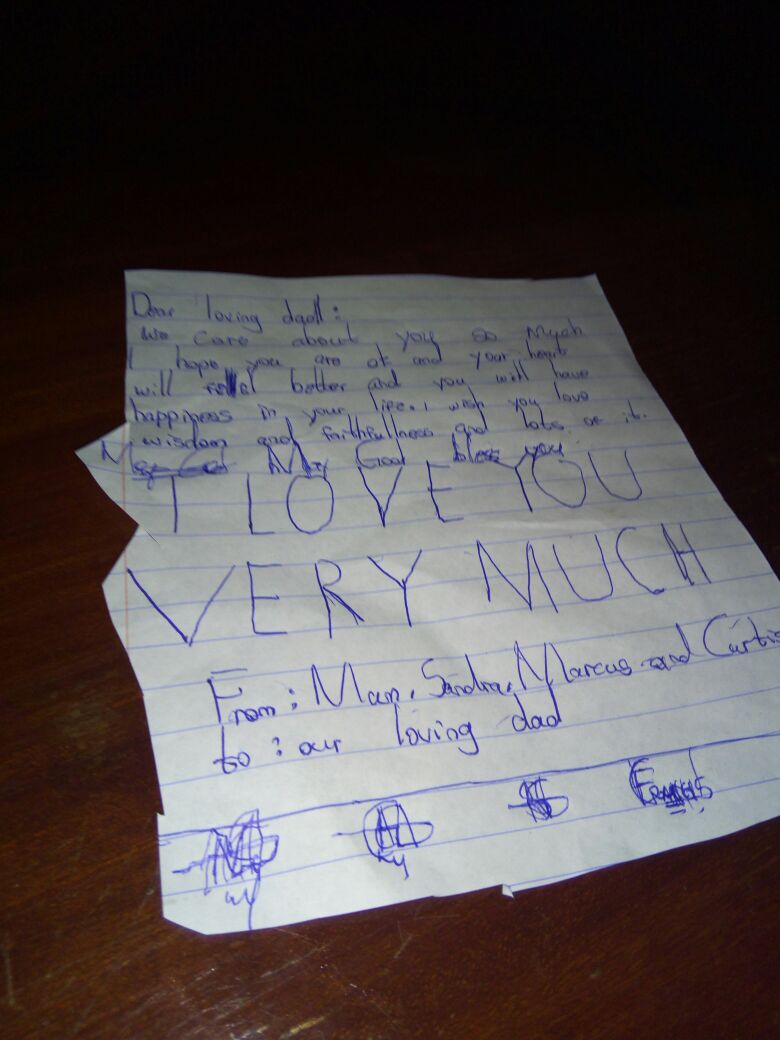 Dear loving dad:
We care about you so Much
I hope you are ok and your heart
will better and you will have
happiness in your life. I wish you love
wisdom and faithfullness and lots of it.
May God bless you
I LOVE YOU
VERY MUCH
From: Mum, Sandra, Marcus and Curtis
to: our loving dad